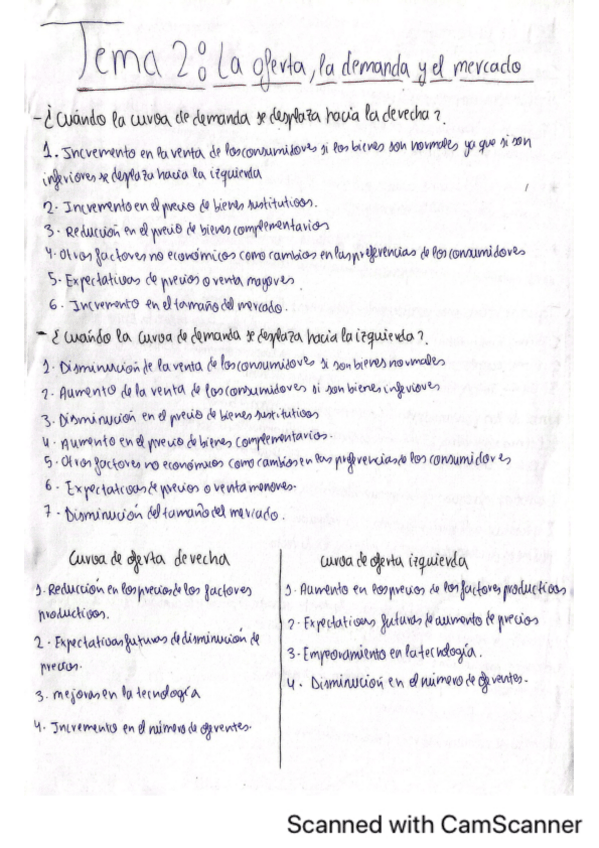 Tema 2: La oferta, la demanda y el mercado
- ¿Cuándo la curva de demanda se desplaza hacia la derecha?
1. Incremento en la renta de los consumidores si los bienes son normales ya que si son
inferiores se desplaza hacia la izquierda
2. Incremento en el precio de bienes sustitutivos.
3. Reducción en el precio de bienes complementarios
4. Otros factores no económicos como cambios en las preferencias de los consumidores
5. Expectativas de precios o renta mayores
6. Incremento en el tamaño del mercado.
- ¿Cuándo la curva de demanda se desplaza hacia la izquierda?
1. Disminución de la renta de los consumidores si son bienes normales
2. Aumento de la renta de los consumidores si son bienes inferiores
3. Disminución en el precio de bienes sustitutivos
4. Aumento en el precio de bienes complementarios.
5. Otros factores no económicos como cambios en las preferencias de los consumidores
6. Expectativas de precios o renta menores.
7. Disminución del tamaño del mercado.
Curva de oferta derecha
1. Reducción en los precios de los factores
productivos.
2. Expectativas futuras de disminución de
precios.
3. mejoras en la tecnología
4. Incremento en el número de oferentes.
curva de oferta izquierda
1. Aumento en los precios de los factores productivos
2. Expectativas futuras de aumento de precios
3. Empeoramiento en la tecnología.
4. Disminución en el número de oferentes.
Scanned with CamScanner